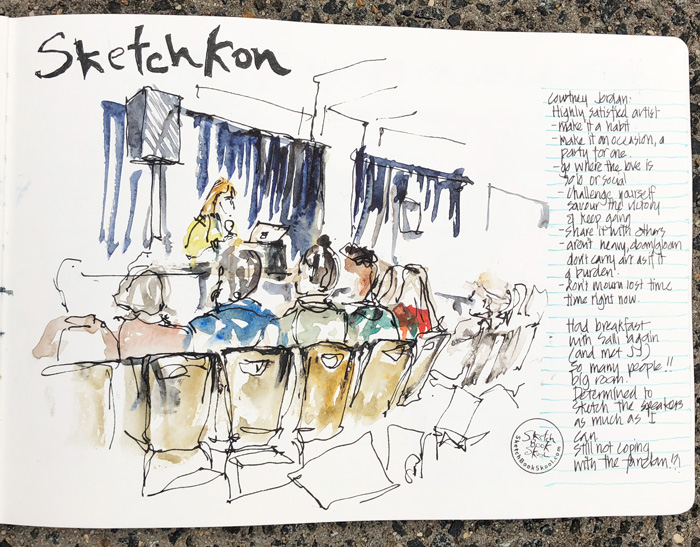 Sketchkon
Courtney Jordan:
Highly satisfied artist
- make it a habit
- make it an occasion, a
party for one
- go where the love is
job or social
- Challenge yourself
savour the victory
& keep going
- share it with others
- aren't heavy, doom/gloom
don't carry art as if it
a burden!
- don't mourn lost time
time right now.
Had breakfast
with Salli again
(and met JY)
So many people!!
big room.
Determined to
sketch the speakers
as much as I
can
Still not coping
with the
Sketch
Book
Skool
SketchBookSkool.com